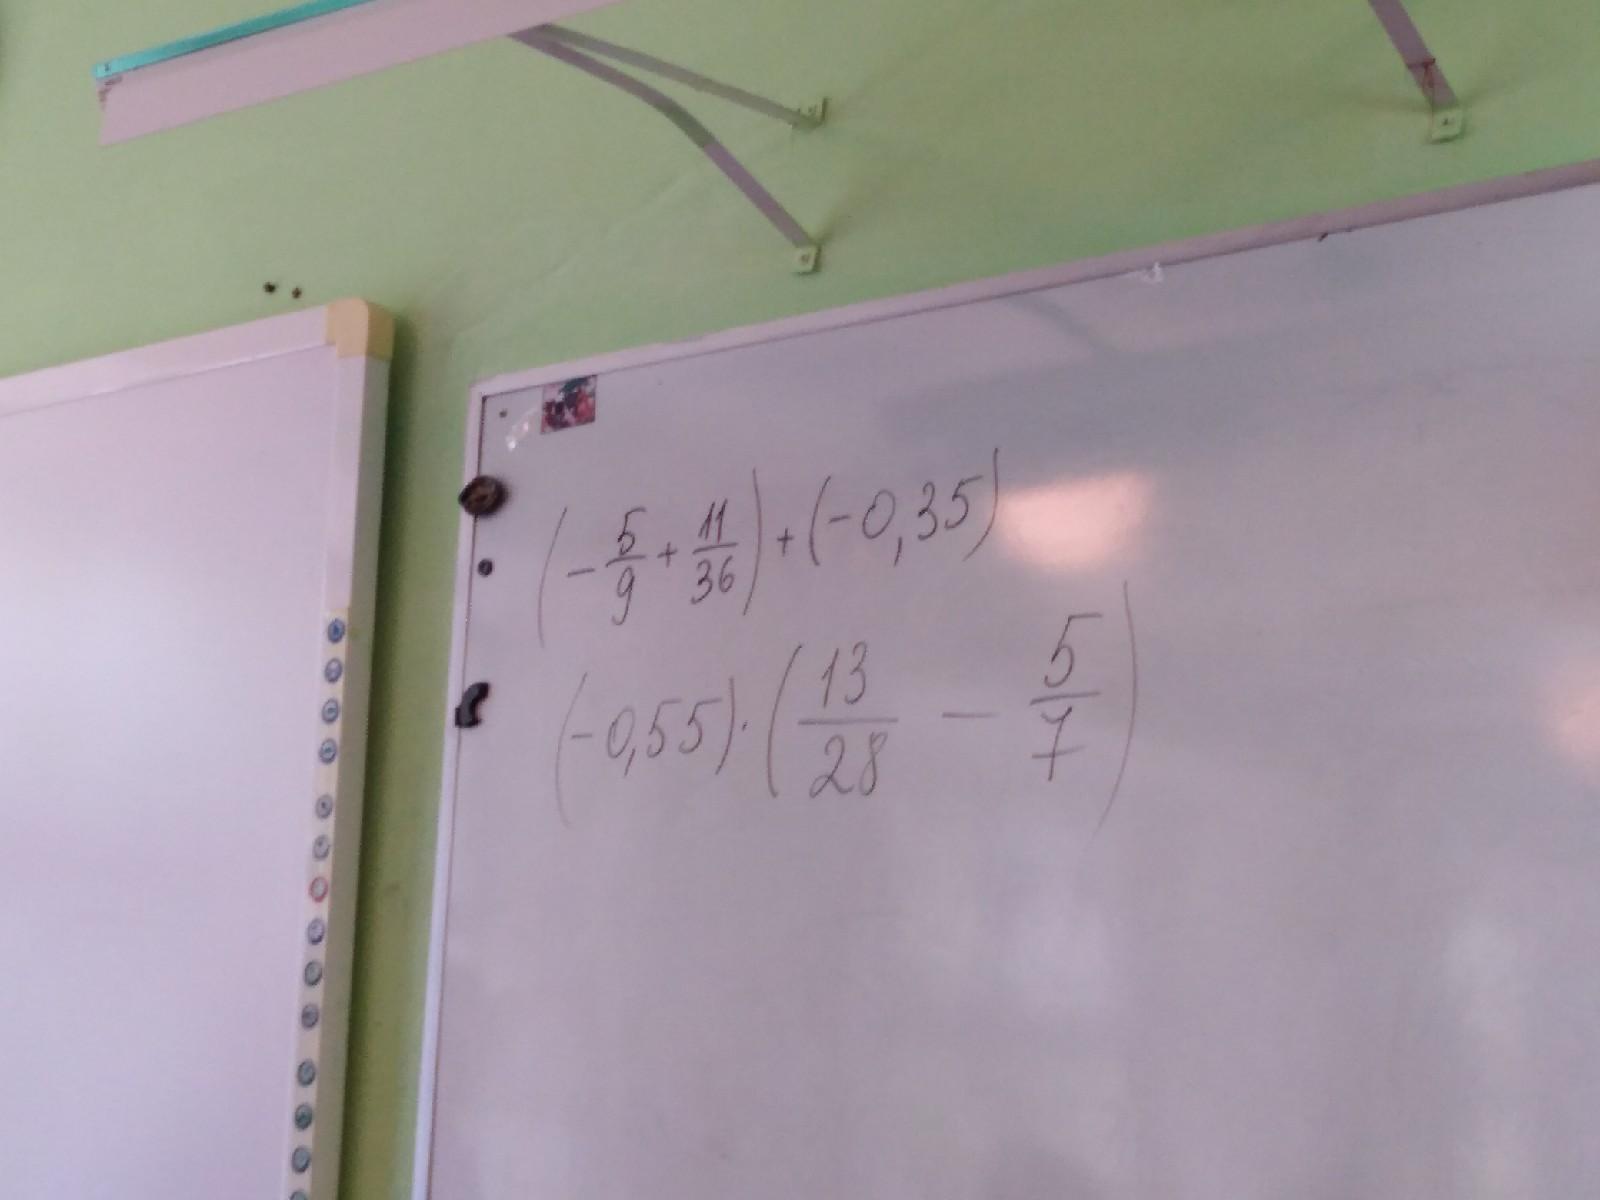 (-5/9 + 11/36) + (-0,35)
(-0,55) · (13/28 - 5/7)